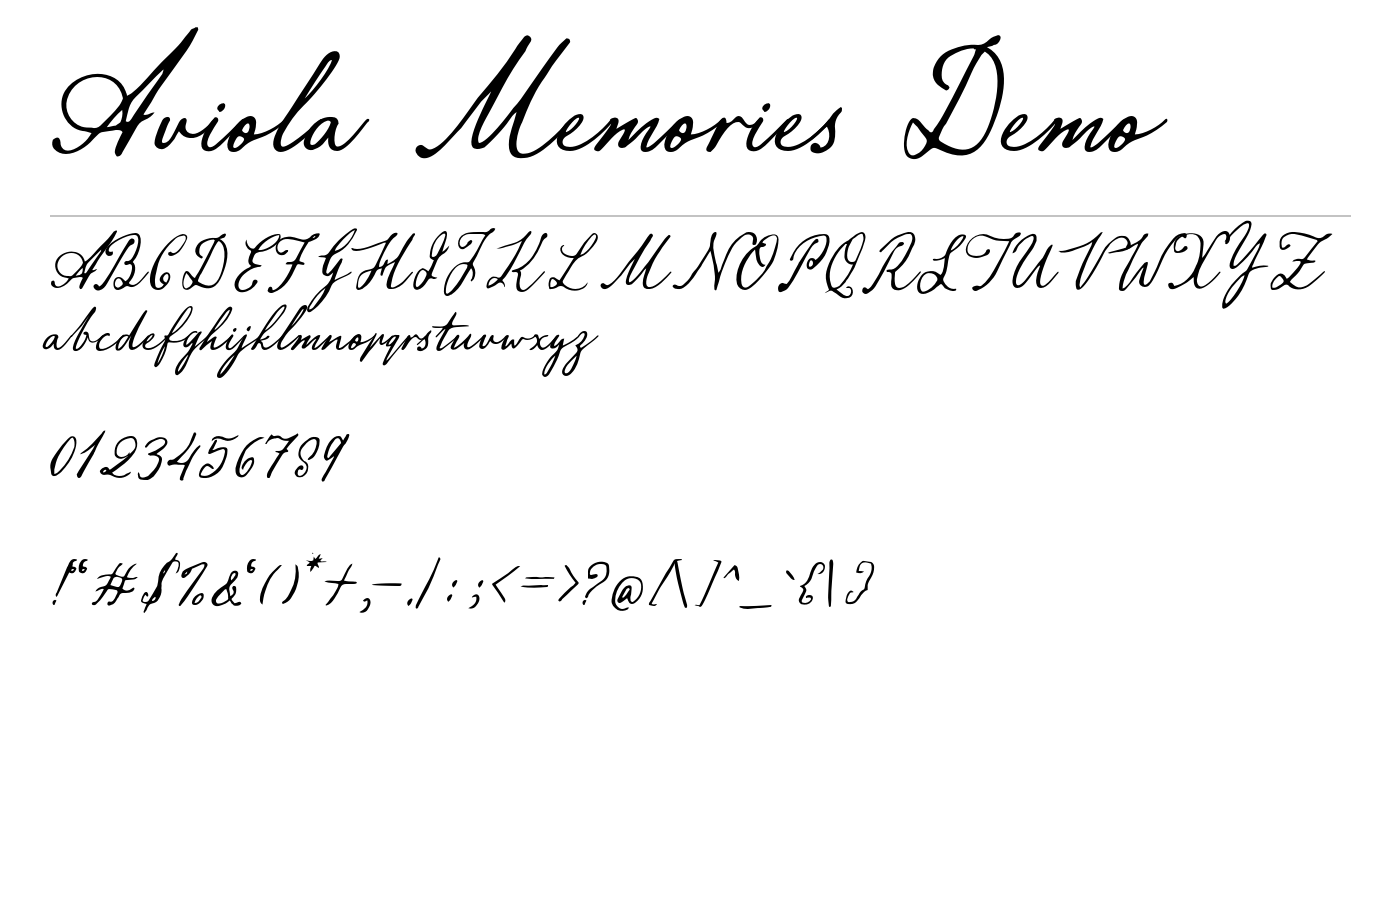 Aviola Memories Demo
ABCDEFGHIJKLMNOPQRSTUVWXYZ
abcdefghijklmnopqrstuvwxyz
0123456789
!“#$%&‘()*+,-./:;<=>?@[\]^_`{|}